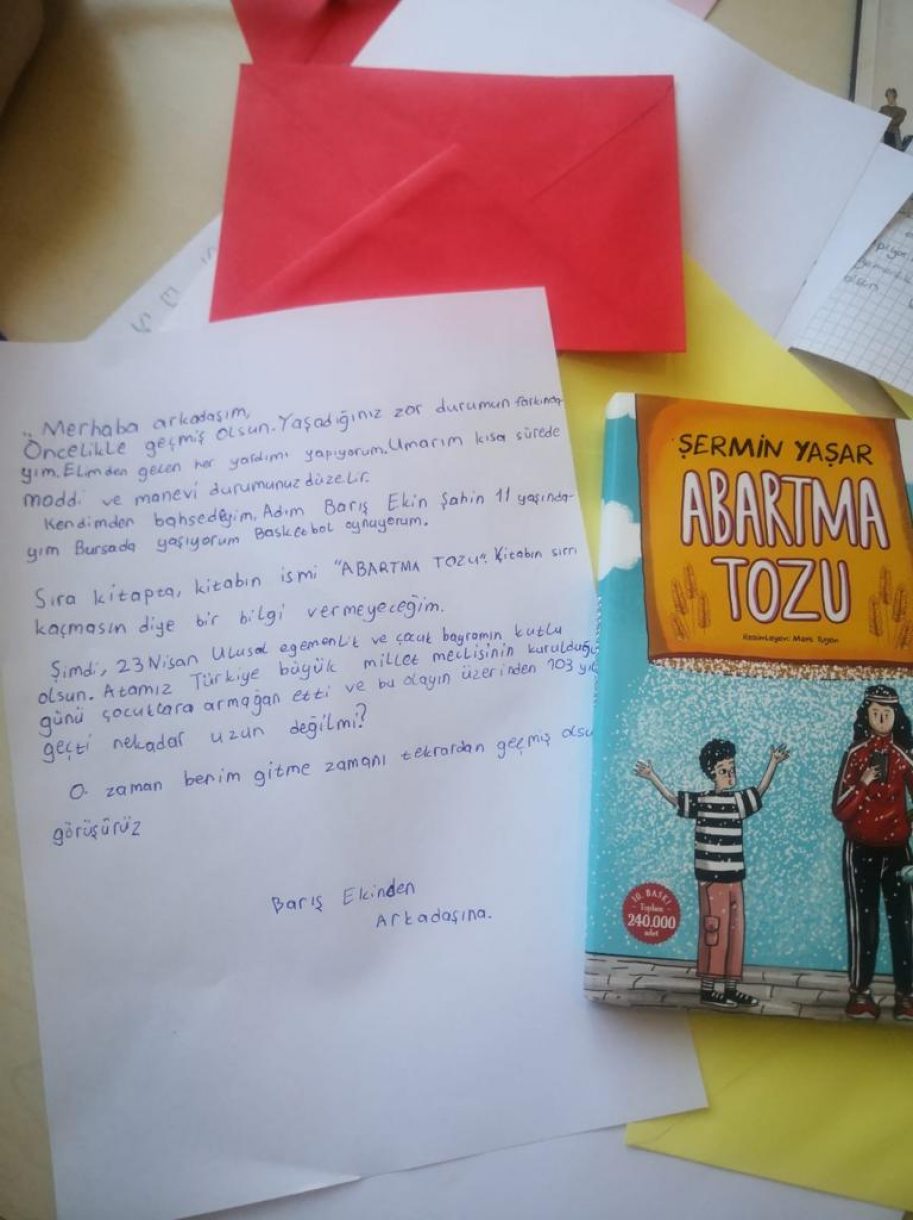 Merhaba arkadaşım,
Öncelikle geçmiş olsun. Yaşadığınız zor durumun farkında-
yım. Elimden gelen her yardımı yapıyorum. Umarım kısa sürede
maddi ve manevi durumunuz düzelir.
Kendimden bahsedeyim. Adım Barış Ekin Şahin 11 yaşında-
yım Bursada yaşıyorum Basketbol oynuyorum.
Sıra kitapta, kitabın ismi "ABARTMA TOZU". Kitabın sırrı
kaçmasın diye bir bilgi vermeyeceğim.
Şimdi, 23 Nisan Ulusal egemenlik ve çocuk bayramın kutlu
olsun. Atamız Türkiye büyük millet meclisinin kurulduğu
günü çocuklara armağan etti ve bu olayın üzerinden 103 yıl
geçti nekadar uzun değilmi?
O zaman benim gitme zamanı tekrardan geçmiş olsu
görüşürüz
Barış Ekinden
Arkadaşına.
ŞERMİN YAŞAR
ABARTMA
TOZU
Resimleyen: Mert Tugen
10. BASKI
Toplam
240.000
adet
olsun